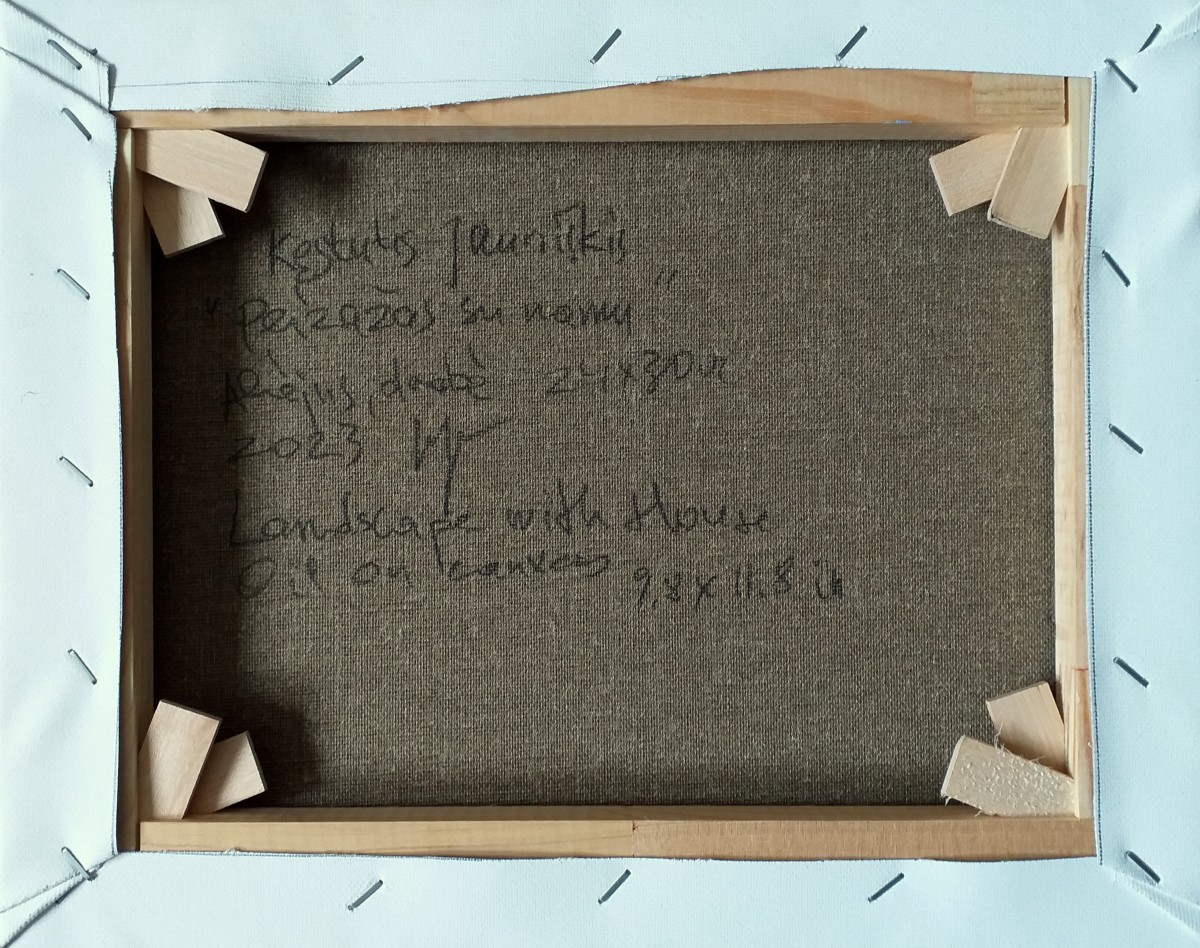 Kęstutis Jauniškis
" Peizažas su namu "
Aliejus, drobė 24x30cm
2023
Landscape with House
Oil on canvas 9,8 x 11.8 in